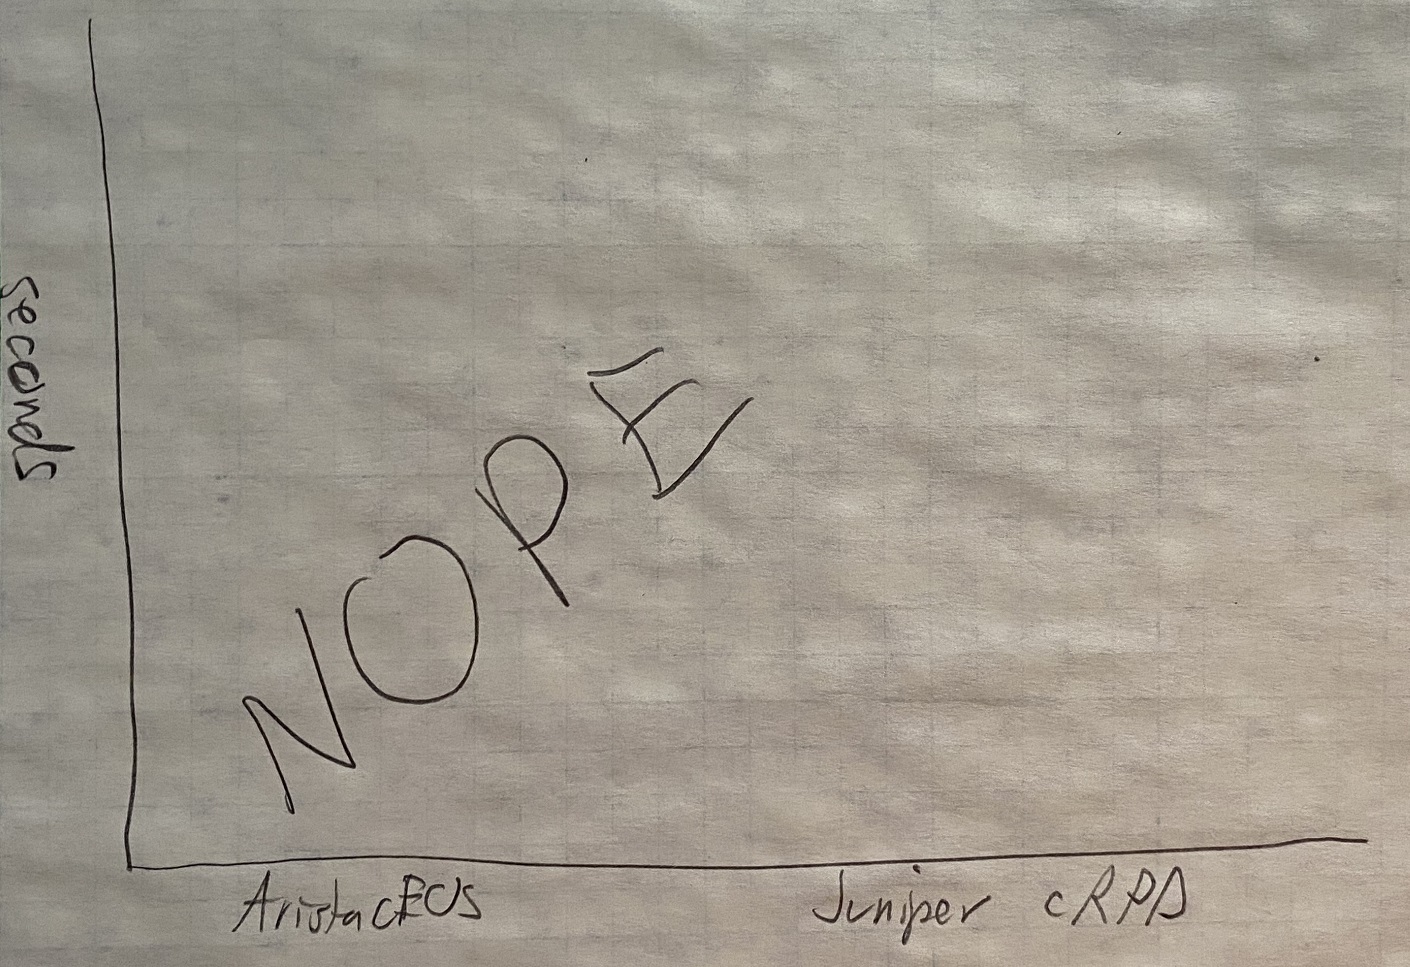 seconds
NOPE
Arista cEOS
Juniper cRPD